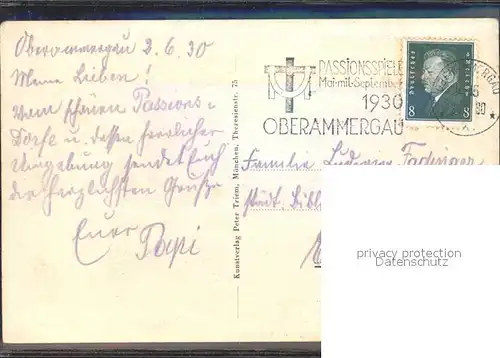 Oberammergau 2.6.30
Meine Lieben!
Vom schönen Passions-
Dorfe u. dessen herrlicher
Umgebung sendet Euch
die herzlichsten Grüße
Euer
Papi
Kunstverlag Peter Triem, München, Theresienstr. 75
PASSIONSSPIELE
Mai-mit-September
1930
OBERAMMERGAU
Deutsches Reich
8 8
30
Familie Ludwig
städt. Bibl
privacy protection
Datenschutz